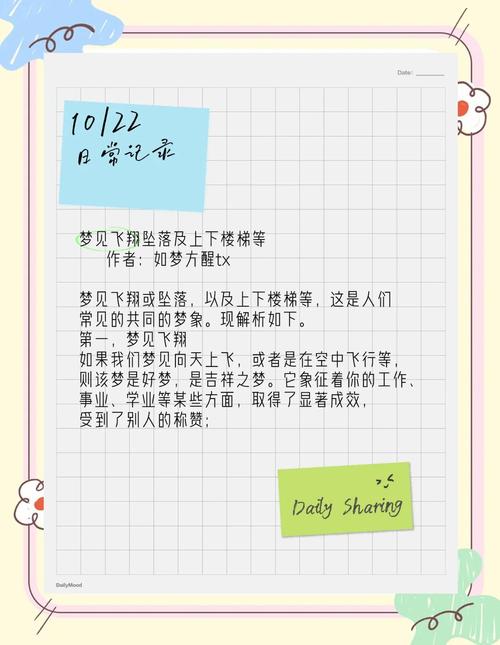 Date:
10/22
日常记录
梦见飞翔坠落及上下楼梯等
作者：如梦方醒tx
梦见飞翔或坠落，以及上下楼梯等，这是人们
常见的共同的梦象。现解析如下。
第一，梦见飞翔
如果我们梦见向天上飞，或者是在空中飞行等，
则该梦是好梦，是吉祥之梦。它象征着你的工作、
事业、学业等某些方面，取得了显著成效，
受到了别人的称赞；
Daily Sharing
DailyMood